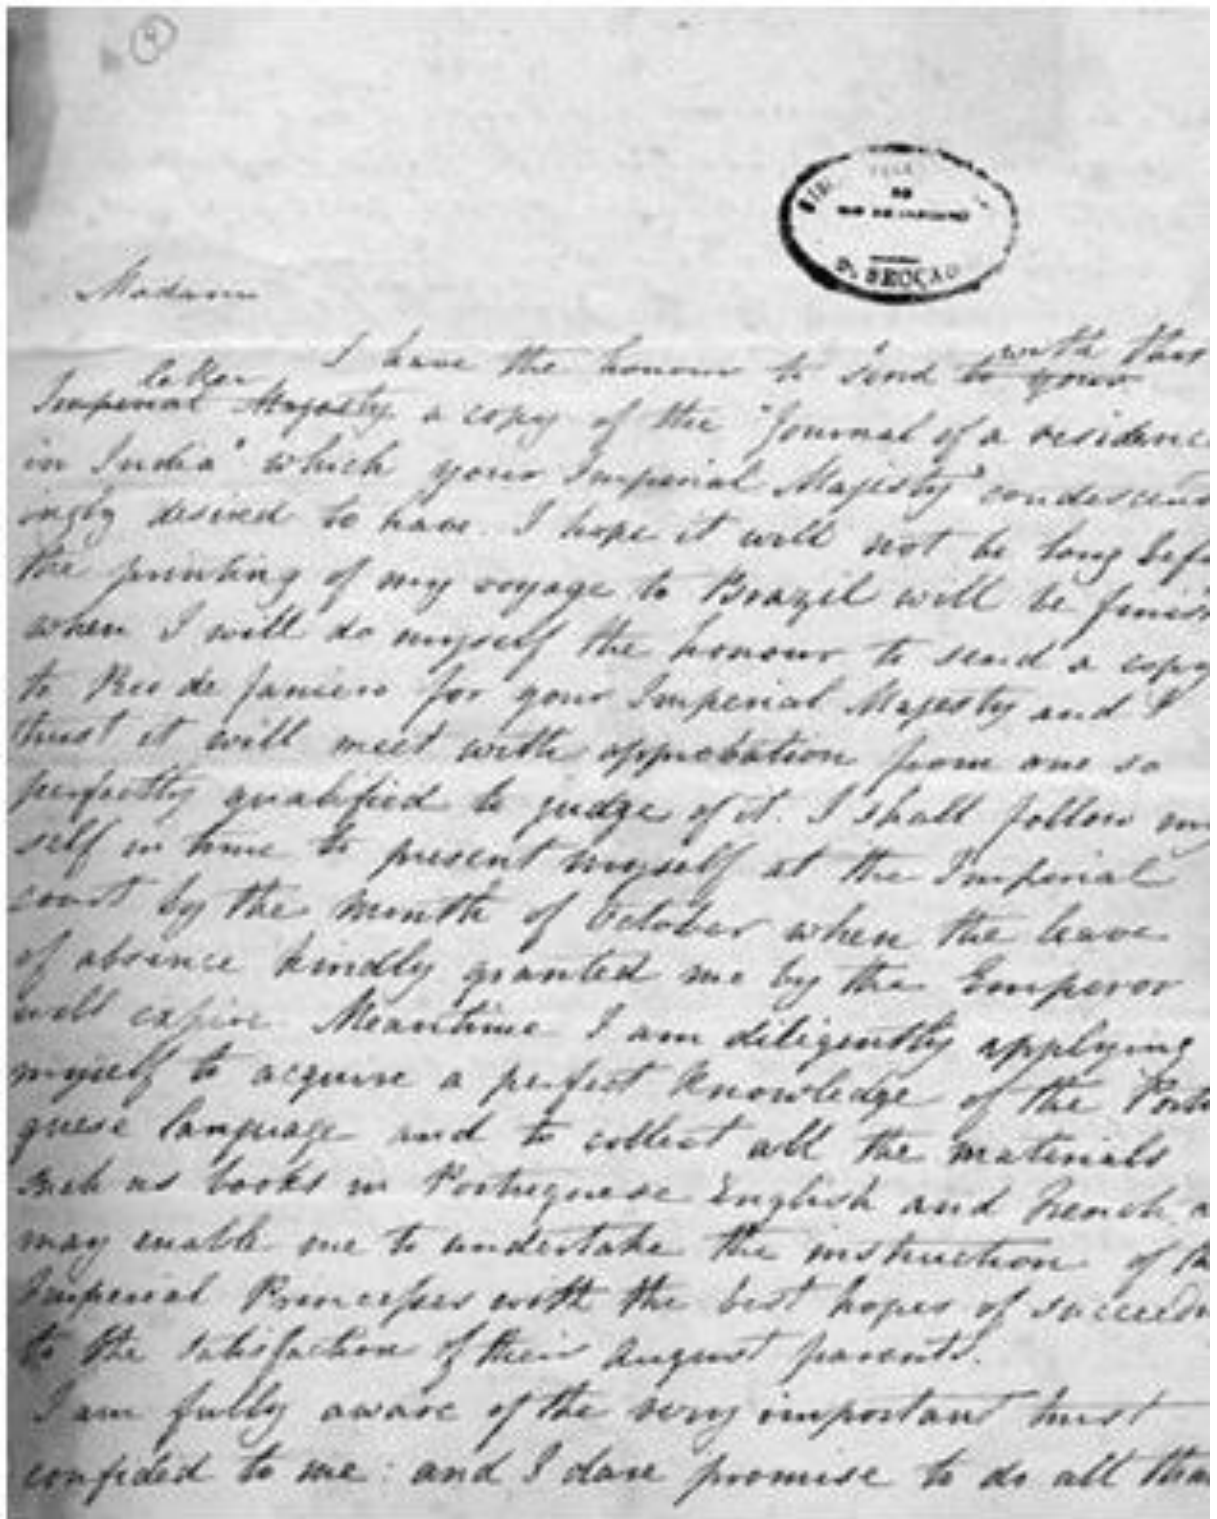 4
RIO DE JANEIRO
SECÇÃO
Madam
I have the honour to send to your with this
letter
Imperial Majesty a copy of the "Journal of a residence
in India" which your Imperial Majesty condescend
ingly desired to have. I hope it will not be long befo
the printing of my voyage to Brazil will be finish
when I will do myself the honour to send a copy
to Rio de Janiero for your Imperial Majesty and I
trust it will meet with approbation from one so
perfectly qualified to judge of it. I shall follow my
self in time to present myself at the Imperial
court by the month of October when the leave
of absence kindly granted me by the Emperor
will expire. Meantime I am diligently applying
myself to acquire a perfect knowledge of the Portu
guese language and to collect all the materials
such as books in Portuguese English and French a
may enable me to undertake the instruction of th
Imperial Princesses with the best hopes of succeedi
to the satisfaction of their august parents.
I am fully aware of the very important trust
confided to me: and I dare promise to do all tha